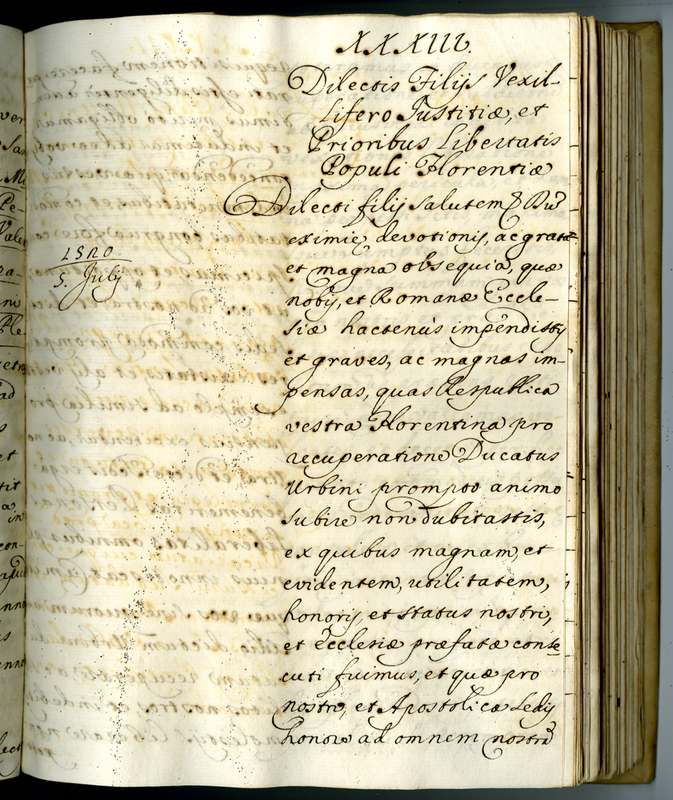 XXXIII.
Dilectis Filijs Vexil-
lifero Justitiæ, et
Prioribus Libertatis
Populi Florentiæ
Dilecti filij salutem
eximiæ devotionis, ac grata
et magna obsequia, quæ
nobis, et Romanæ Eccle-
siæ hactenùs impendistis
et graves, ac magnas im-
pensas, quas Respublica
vestra Florentina pro
recuperatione Ducatus
Urbini prompto animo
subire non dubitastis,
ex quibus magnam, et
evidentem, utilitatem,
honoris, et status nostri,
et Ecclesiæ præfatæ conse
cuti fuimus, et quæ pro
nostro, et Apostolicæ Sedis
honore ad omnem nostrū
1520
5. Julij